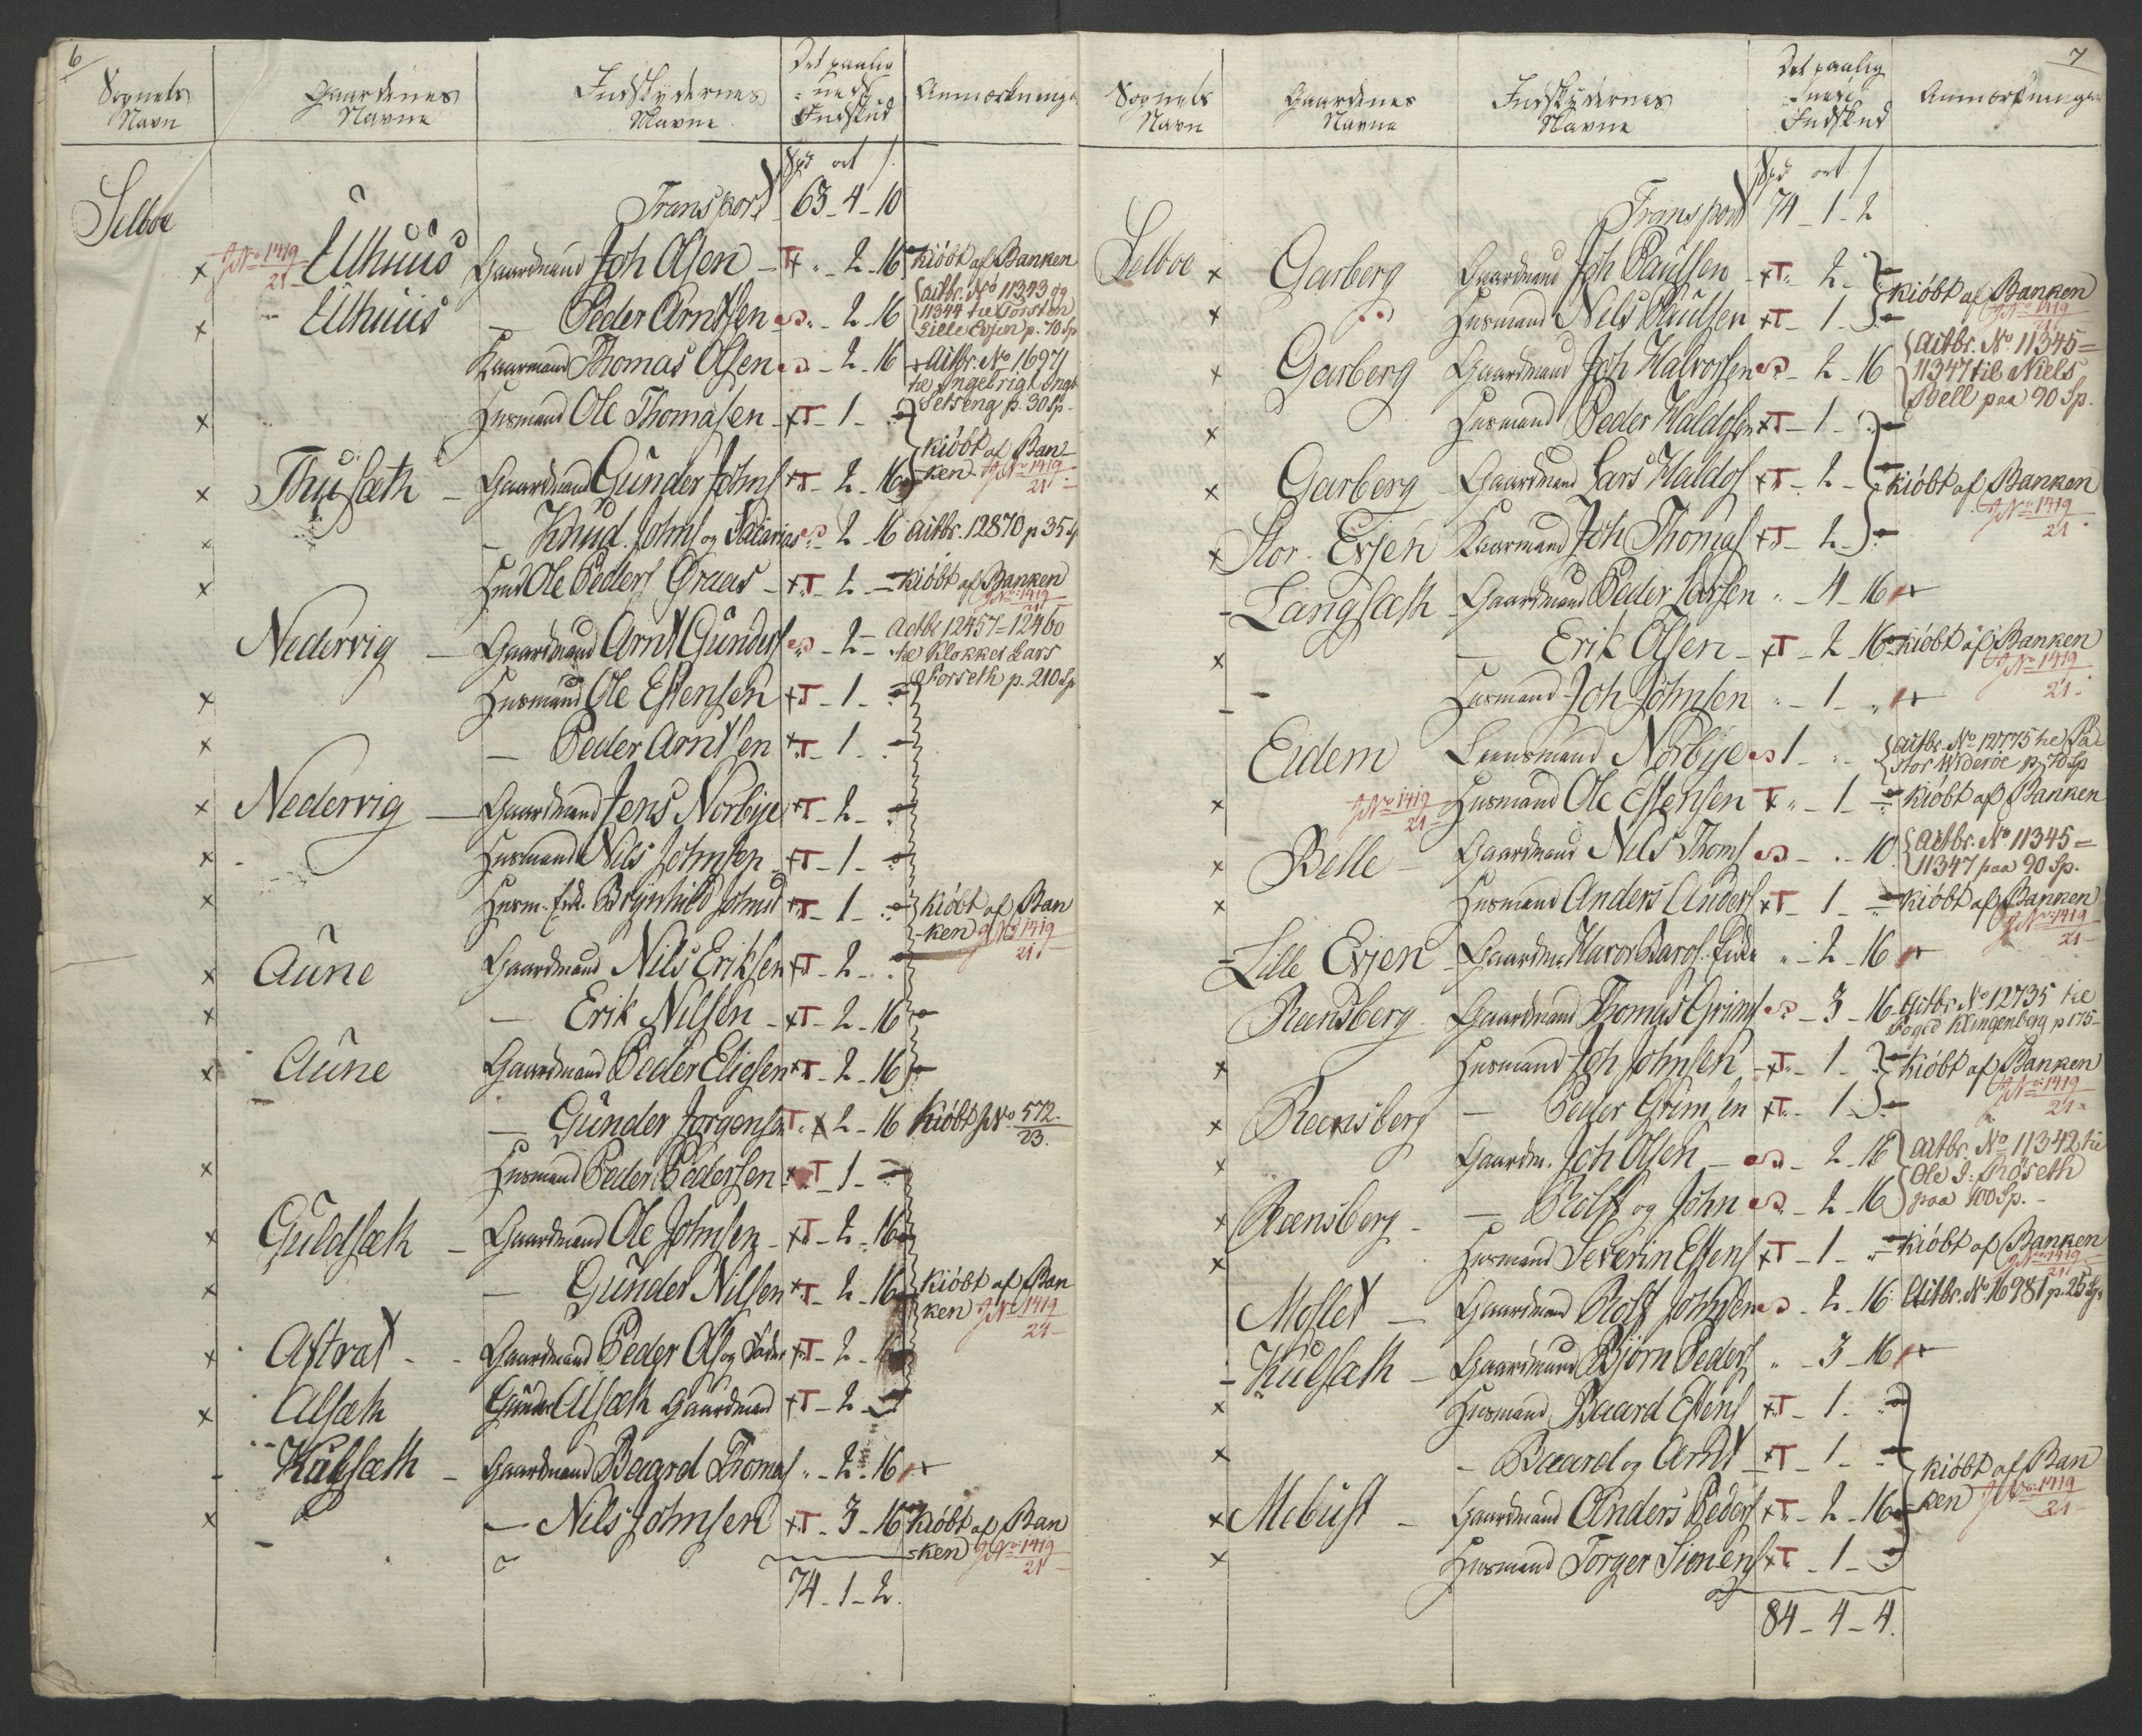 6
Sognets Navn
Gaardenes Navne
Indskydernes Navne
Det paalig
nede
Indskud
Anmærkninge
Spd ort s
Selboe
Transport 63 - 4 - 10
JNo 1419/21 Ulhuus Gaardmand Joh Olsen - T „ - 2 - 16 Kiöbt af Banken
Ulhuus — Peder Arntsen - 2 - 16 actbr. No 11343 og
11344 til Torsten
Lille Evjen p. 70 Sp
Kaarmand Thomas Olsen - 2 - 16 Actbr. No 16971
til Ingebrigt Ingb
Selseng p. 30 Sp.
Husmand Ole Thomasen xT - 1 -
Thuseth - Gaardmand Gunder Johns xT - 2 - 16 Kiöbt af Ban
ken. JNo 1419/21
— Knud Johns og - 2 - 16 Actbr. 12870 p 35 Sp
Hmd Ole Peders Graae - xT - 2 - Kiöbt af Banken
JNo 1419/21
Nedervig — Gaardmand Arnt Gunders - 2 - Actbr 12457 = 12460
til Klokker Lars
Forseth p. 210 Sp
Husmand Ole Estensen xT - 1 -
— Peder Arntsen xT - 1 -
Nedervig — Gaardmand Jens Norbye xT - 2 -
Husmand Nils Johnsen xT - 1 -
Husm. Enk. Brynhild Johnsd xT - 1 - Kiöbt af Ban
ken JNo 1419/21
Aune Gaardmand Nils Eriksen xT - 2 -
— Erik Nilsen - xT - 2 - 16
Aune Gaardmand Peder Eliesen xT - 2 - 16
— Gunder Jorgensen T x 2 - 16 Kiöbt JNo 572/23.
Husmand Peder Pedersen x T - 1 -
Guldseth - Gaardmand Ole Johnsen - xT - 2 - 16
— Gunder Nilsen xT - 2 - 16 Kiöbt af Ban
ken JNo 1419/21
Aftrat - - Gaardmand Peder Ols og xT - 2 -
Alseth Gunder Alseth Gaardmand xT - 2 -
Kulseth - Gaardmand Baard Thomas „ - 2 - 16
— Nils Johnsen xT - 3 - 16 Kiöbt af Ban
ken JNo 1419/21
74 - 1 - 2.
7
Sognets Navn
Gaardenes Navne
Indskydernes Navne
Det paalig
nede
Indskud
Anmærkninger
Spd ort s
Transport 74 - 1 - 2
Selboe x Garberg Gaardmand Joh Paulsen - xT „ 2 - Kiöbt af Banken
JNo 1419/21
x Husmand Nils Paulsen xT - 1 -
x Garberg Gaardmand Joh Halvorsen - 2 - 16 Actbr. No 11345 =
11347 til Niels
Bell paa 90 Sp.
x Husmand Peder Haldosen xT - 1 -
x Garberg Gaardmand Lars Haldos xT - 2 - Kiöbt af Banken
JNo 1419/21
x Stor Evjen Kaarmand Joh Thomas xT - 2 -
- Langseth Gaardmand Peder Larsen „ - 4 - 16
x — Erik Olsen - xT - 2 - 16 Kiöbt af Banken
JNo 1419/21
- Husmand Joh Johnsen „ - 1 -
Eidem Leensmand Norbye 1 - Actbr No 12775 til
Stor Wideröe p. 70 Sp
x JNo 1419/21 Husmand Ole Estensen T x „ - 1 - Kiöbt af Banken
x Belle - Gaardmand Nils Thoms - „ - 10 Actbr. No 11345 =
11347 paa 90 Sp.
x Husmand Anders Anders xT - 1 - Kiöbt af Banken
JNo 1419/21
- Lille Evjen - Gaardm. „ - 2 - 16
Reensberg Gaardmand Thomas Grims - 3 - 16 Actbr No 12735 til
Foged Klingenberg p 175
x Husmand Joh Johnsen - xT - 1 - Kiöbt af Banken
JNo 1419/21
x Reensberg — Peder Grimsen xT - 1 -
x Gaardm. Joh Olsen - 2 - 18 Actbr. No 11342 til
Ole J. Röseth
paa 100 Sp. -
x Reensberg - — Rolf og John - 2 - 16
x Husmand Severin Estens xT - 1 - Kiöbt af Banken
JNo 1419/21
Moslet — Gaardmand Rolf Johnsen - 2 - 16 Actbr. No 16981 p. 25 Sp
- Kulseth - Gaardmand Björn Peders „ - 3 - 16
x Husmand Baard Estens xT - 1 -
x - Baard og Arnt xT - 1 - Kiöbt af Ban
ken JNo 1419/21
x Mebust - Gaardmand Anders Peders xT - 2 - 16
x Husmand Torger Simens xT - 1 -
84 - 4 - 4.